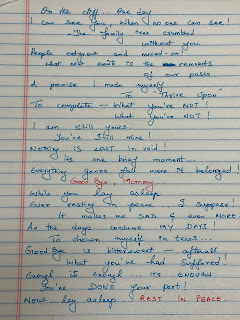 On the cliff... One day
I can see you, When no one can see!
"The family tree crumbed
without you
People outgrew and moved-on!
What not exists is the remnants
of our pasts
A promise I made myself
To "Thrive Upon"
To complete - What you've NOT!
What you've NOT!
I am still yours...
You're still mine!
NOTHING IS LOST in void!
Its one briny moment...
Everything gonna you were it belonged!
Good bye, Mommy...
While you lay asleep
Ever resting in peace... I suppose!
It makes me SAD & even MORE..
As the days consume MY DAYS!
To drown myself in tears...
Good Bye is bittersweet - afterall
What you've had suffered!
Enough... its enough... ITS ENOUGH
You've DONE your part!
Now.. lay asleep REST IN PEACE...